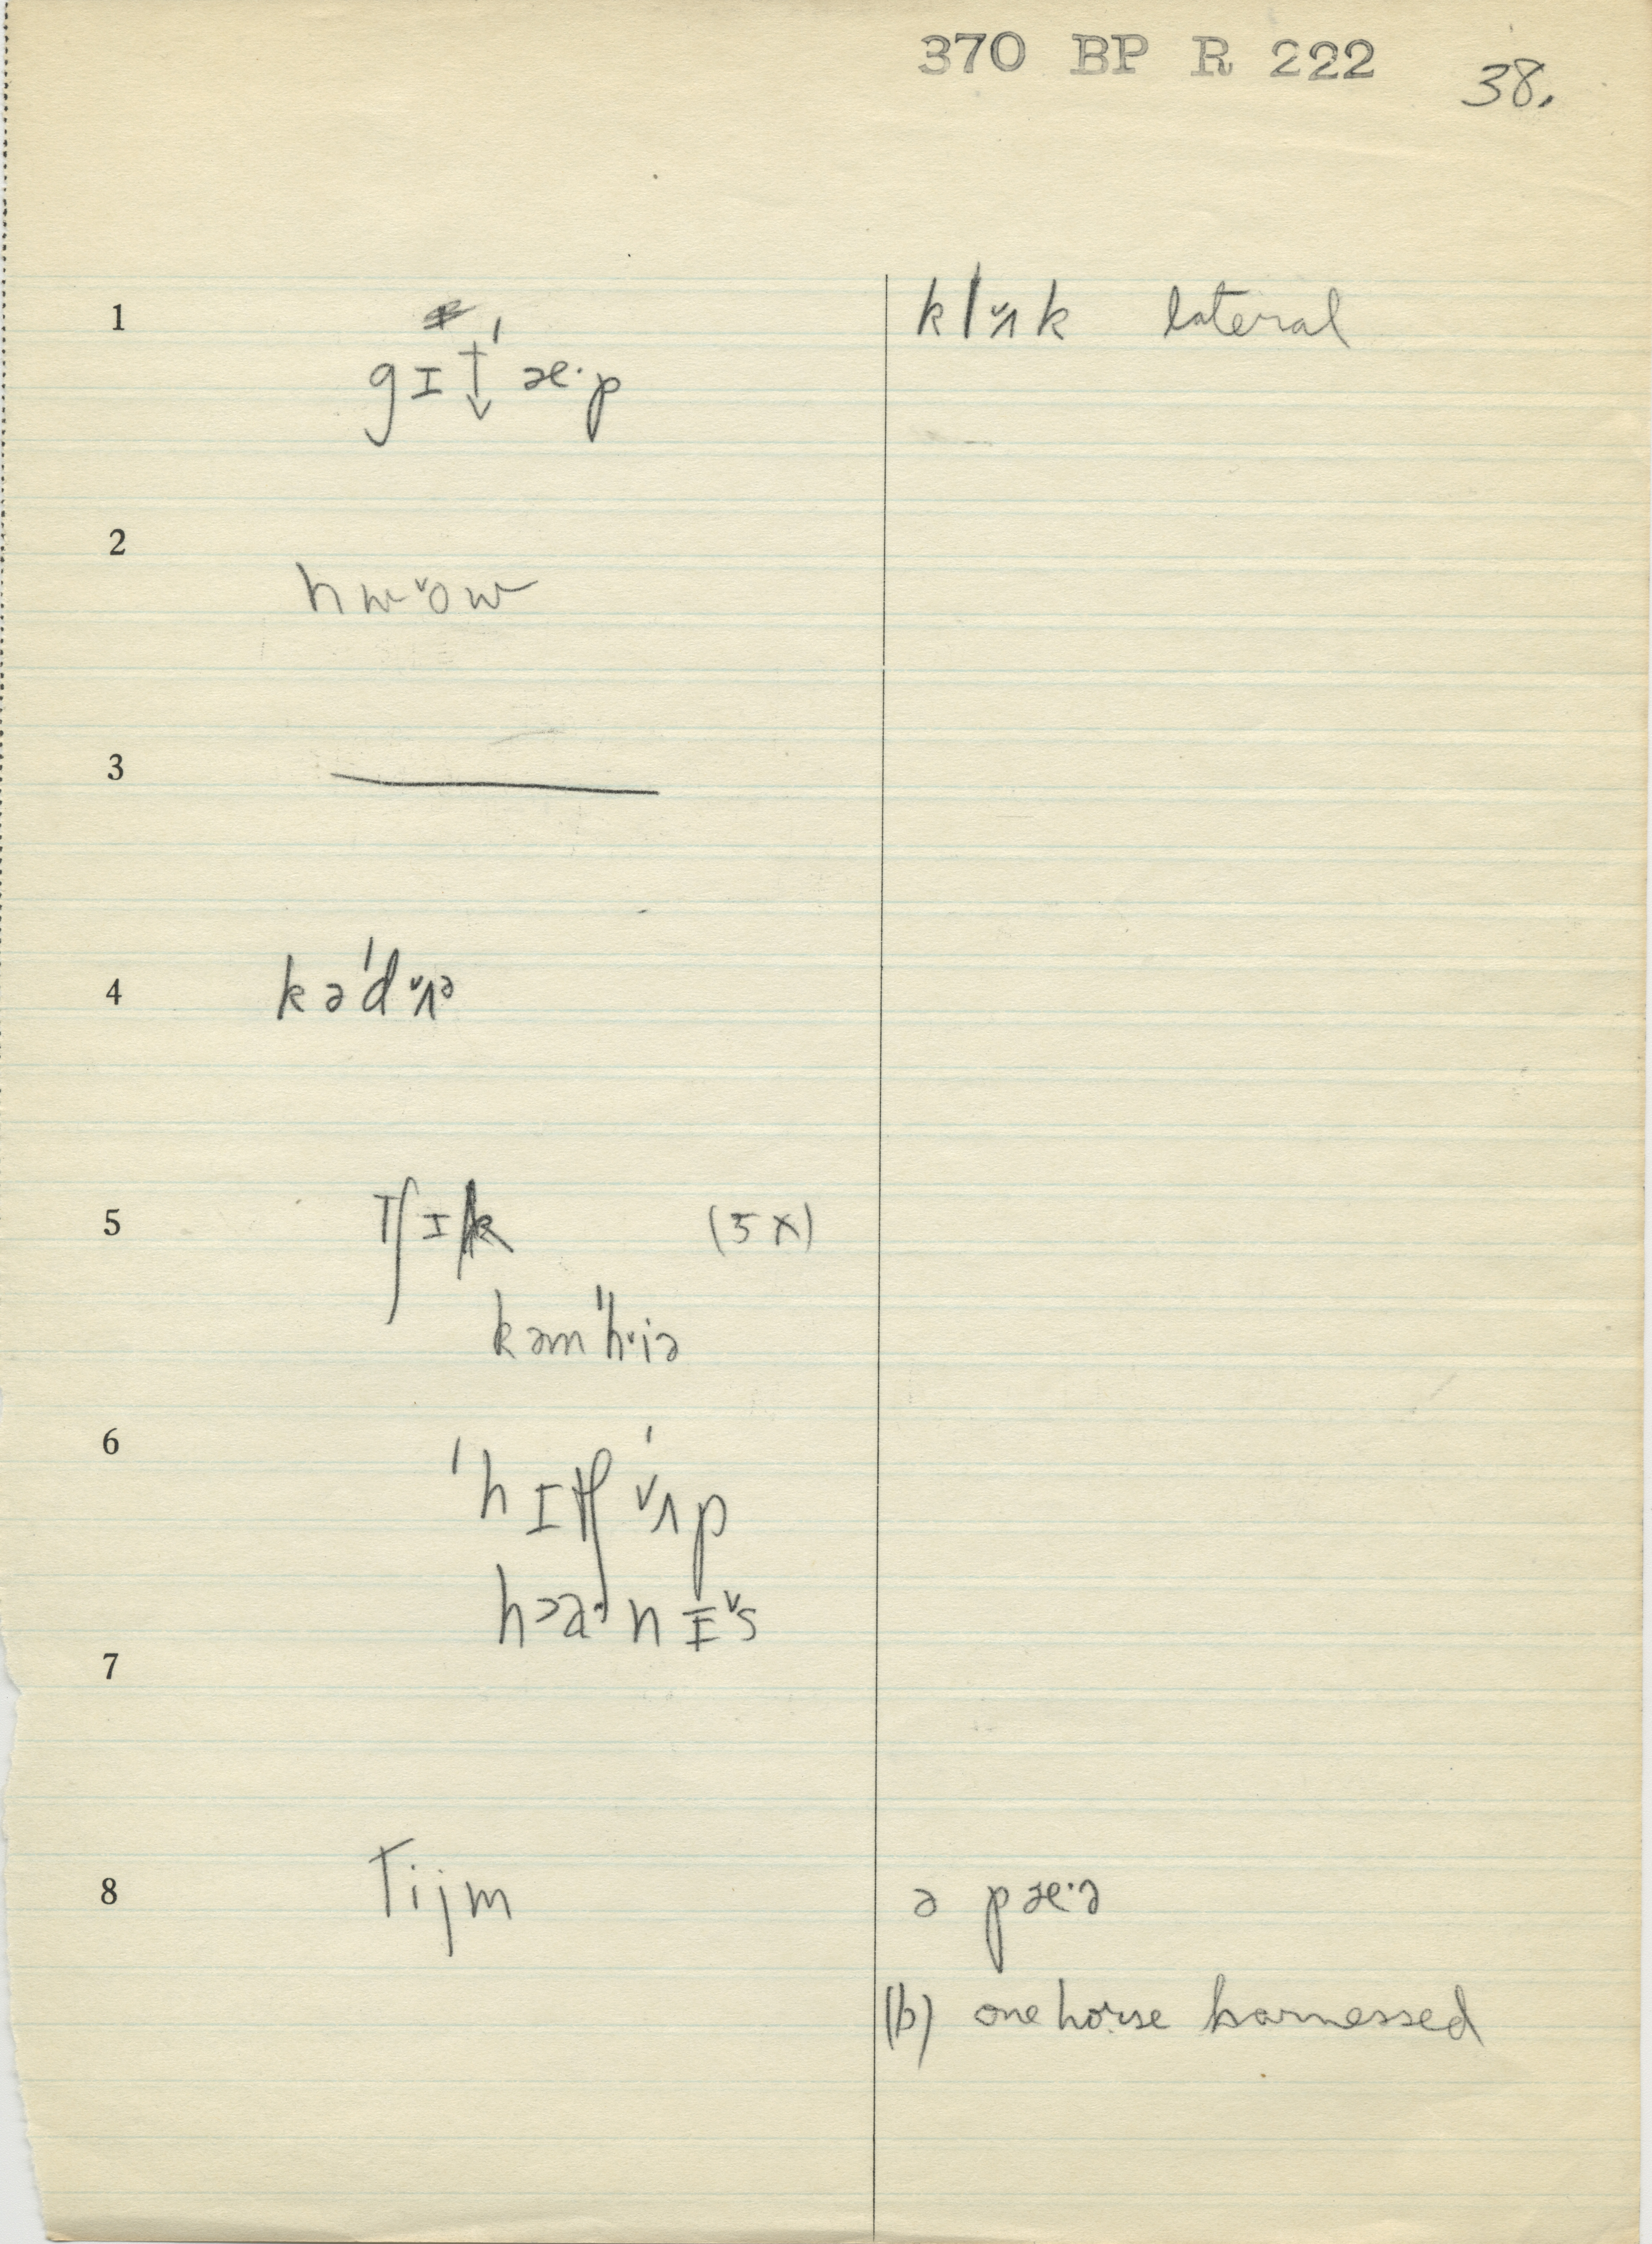 370 BP R 222 38.
1 gɪt̬ˈæ·p klˇʌk lateral
2 hwˇow
3
4 kəˈdˇʌə
5 tʃɪk (5x)
kəmˈhˇiə
6 ˈhɪtʃˈˇʌp
hɑənɪˇs
7
8 Tijm ə pæ·ə
(b) one horse harnessed